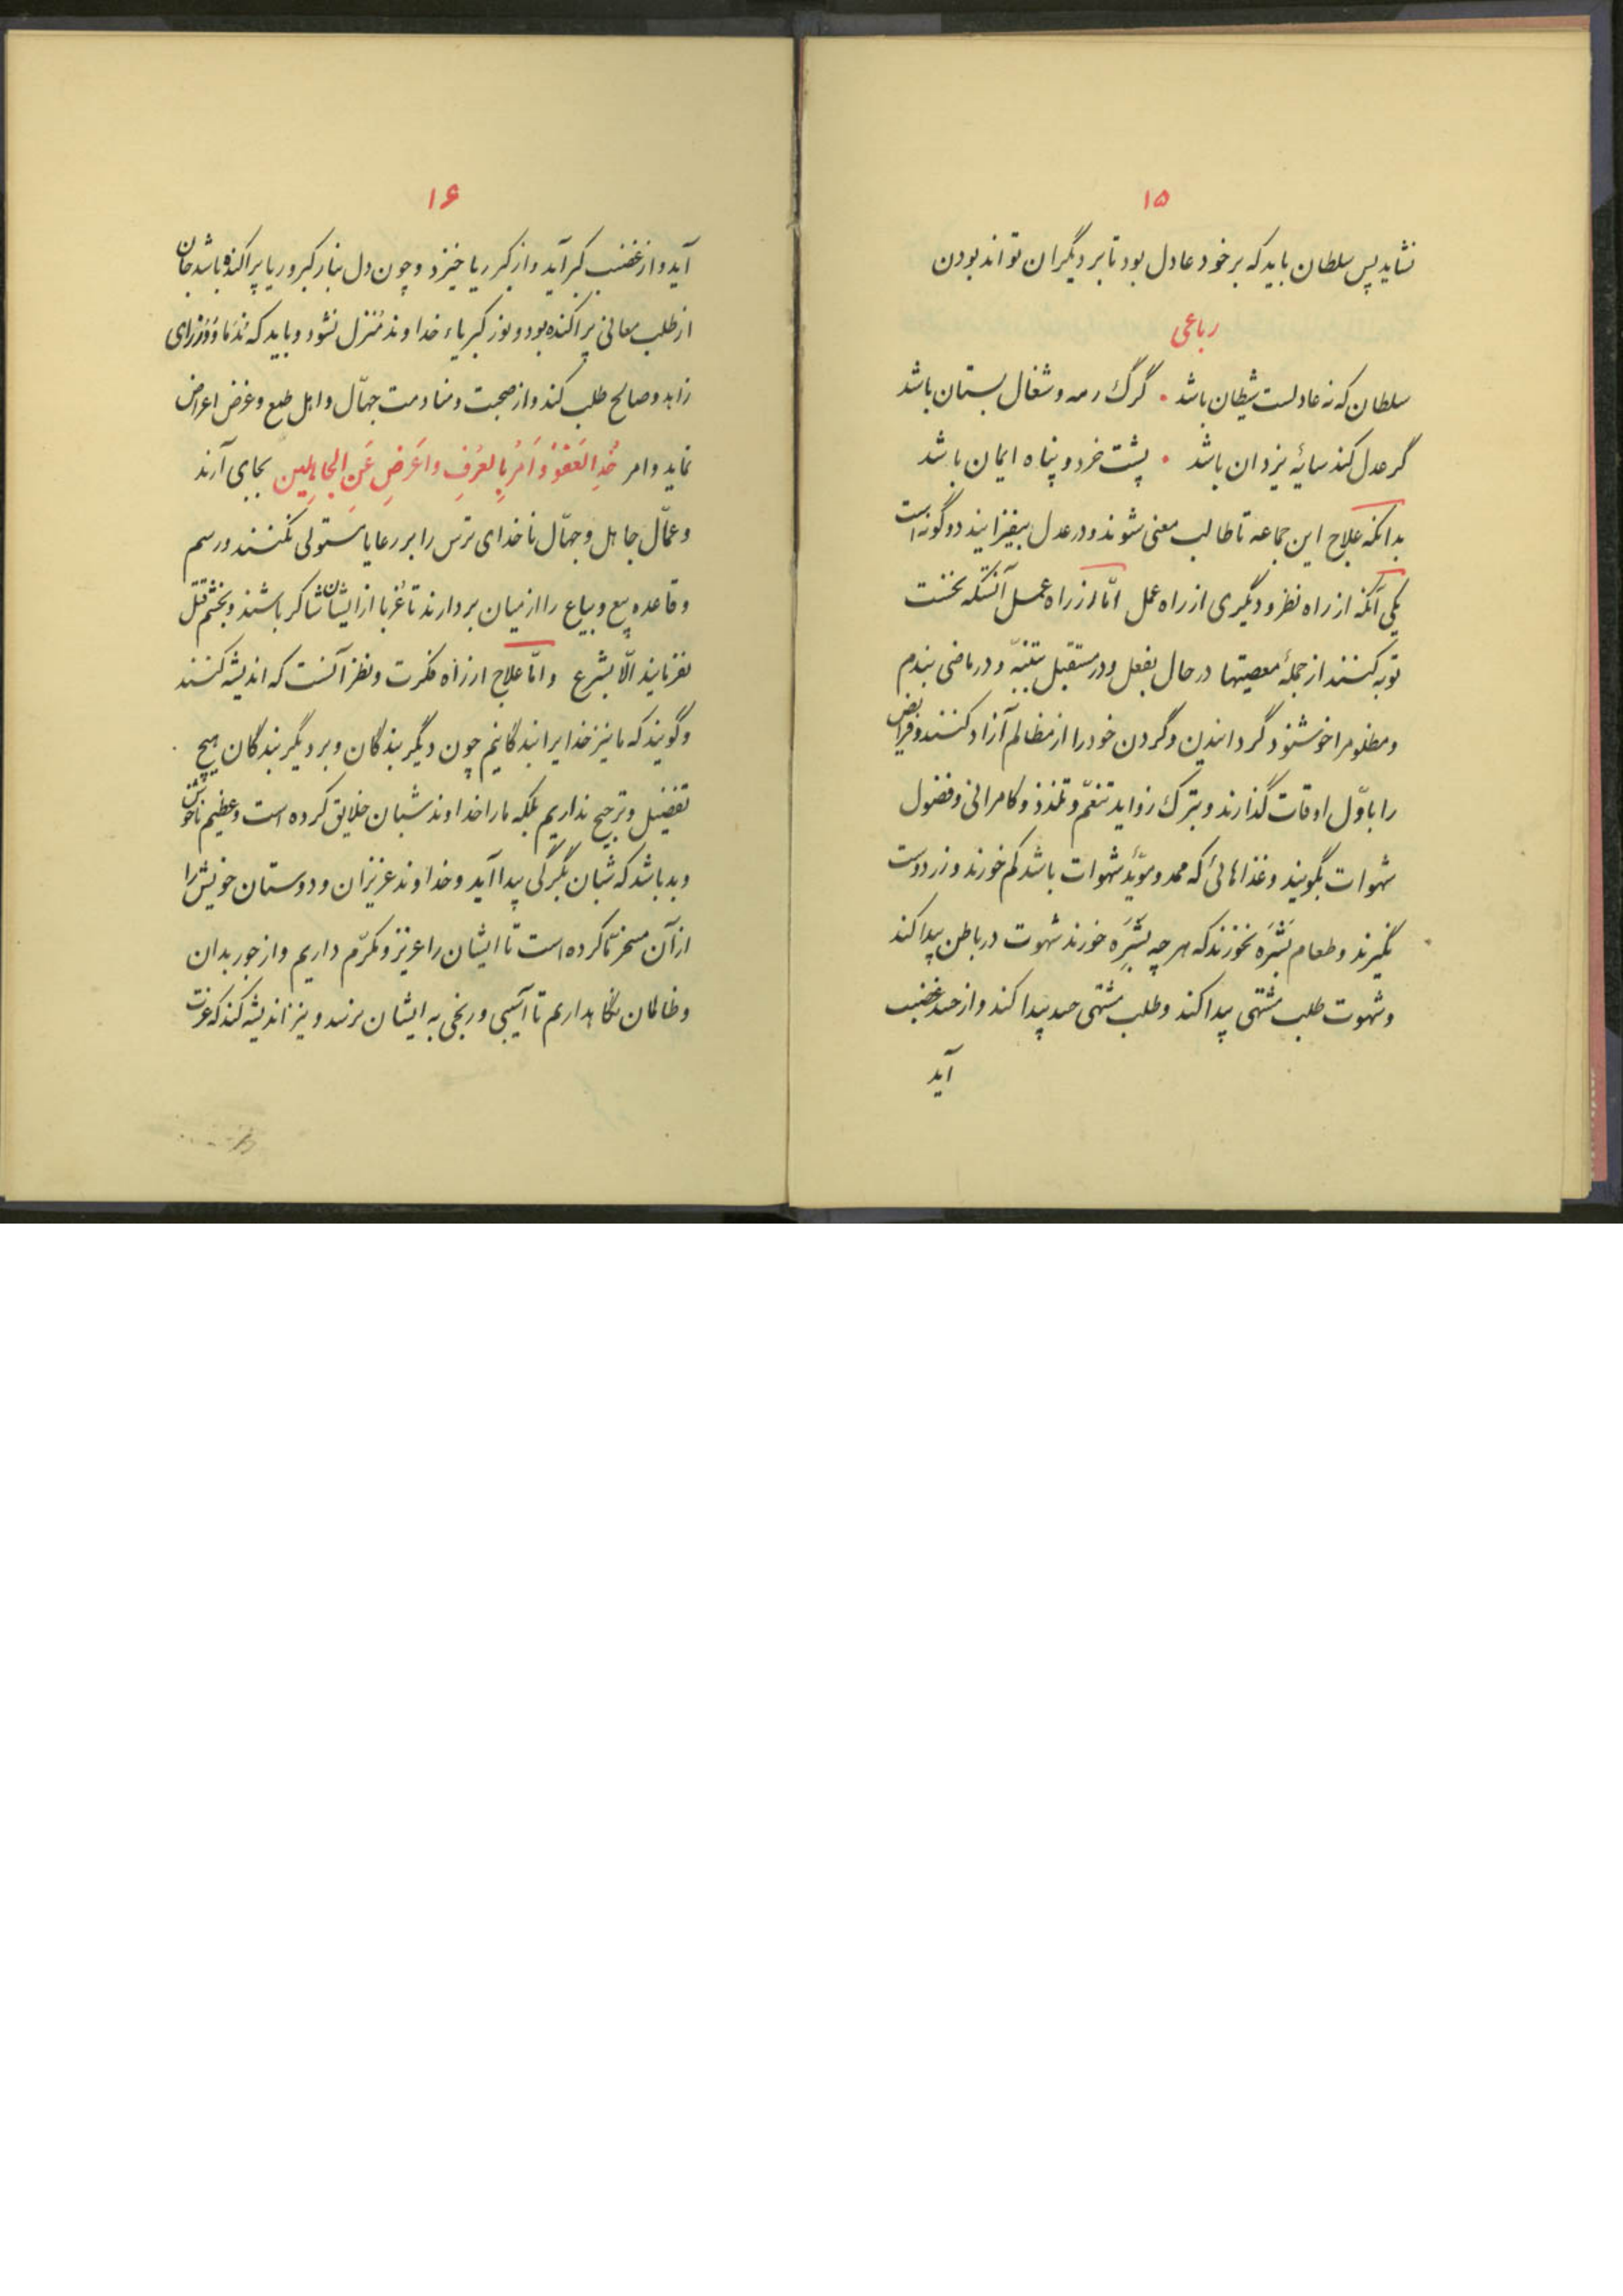 ۱۵
نشاید پس سلطان باید که بر خود عادل بود تا بر دیگران تواند بودن
رباعی
سلطان که نه عادلست شیطان باشد • گرگ رمه و شغال بستان باشد
گر عدل کند سایهٔ یزدان باشد • پشت خرد و پناه ایمان باشد
بدانکه علاج این جماعه تا طالب معنی شوند و در عدل بیفزایند دو گونه است
یکی آنکه از راه نظر و دیگری از راه عمل امّا از راه عمل آنستکه نخست
توبه کنند از جملهٔ معصیتها در حال بفعل و در مستقبل بتنبّه و در ماضی بندم
و مظلومرا خوشنود گردانیدن و گردن خود را از مظالم آزاد کنند و فرایض
را باوّل اوقات گذارند و بترک زواید تنعّم و تلذذ و کامرانی و فضول
شهوات بگویند و غذاهائی که ممد و مویّد شهوات باشد کم خورند و زر دوست
نگیرند و طعام بَشَرَه نخورند که هر چه بشَرَه خورند شهوت در باطن پیدا کند
و شهوت طلب مشتهی پیدا کند و طلب مشتهی حسد پیدا کند و از حسد غضب
آید
۱۶
آید و از غضب کبر آید و از کبر ریا خیزد و چون دل بنار کبر و ریا پراکنده باشد جان
از طلب معانی پراکنده بود و نور کبریاء خداوند مُنزل نشود و باید که نُدَما و وُزرای
زاهد و صالح طلب کند و از صحبت و منادمت جهّال و اهل طمع و غرض اعراض
نماید و امر خُذِ العَفوَ وَأمُر بِالعُرفِ وَاَعرِض عَنِ الجاهِلین بجای آرند
و عمّال جاهل و جهّال ناخدای ترس را بر رعایا مستولی نکنند و رسم
و قاعده بیع و بیاع را از میان بردارند تا غُربا از ایشان شاکر باشند و بخشم قتل
نفرمایند الّا بشرع و امّا علاج از راه فکرت و نظر آنست که اندیشه کنند
و گویند که ما نیز خدایرا بندگانیم چون دیگر بندگان و بر دیگر بندگان هیچ
تفضیل و ترجیح نداریم بلکه ما را خداوند شبان خلایق کرده است و عظیم ناخوش
و بد باشد که شبان بگرگی پیدا آید و خداوند عزیزان و دوستان خویش را
از آن مسخر ما کرده است تا ایشان را عزیز و مکرّم داریم و از جور بدان
و ظالمان نگاهداریم تا آسیبی و رنجی به ایشان نرسد و نیز اندیشه کند که عزت